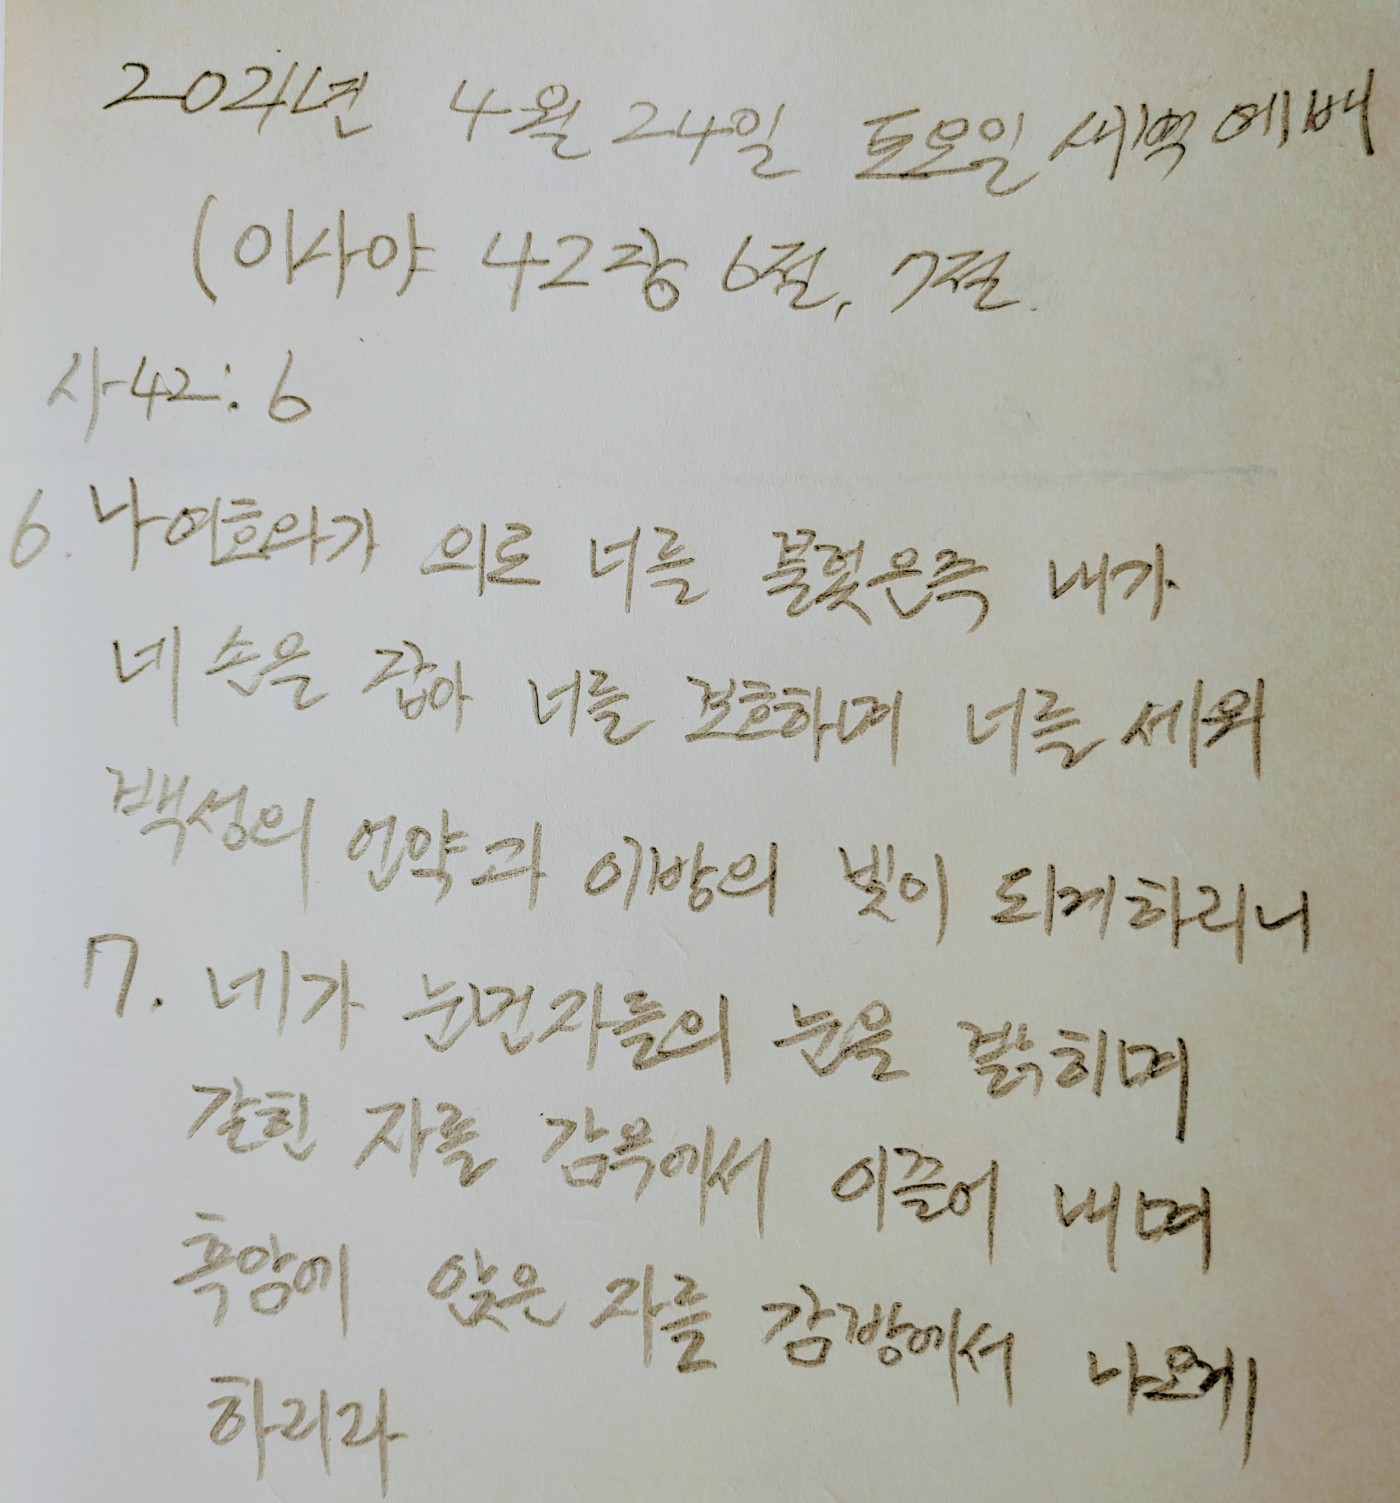 2021년 4월 24일 토요일 새벽예배
(이사야 42장 6절, 7절.
사42:6
6. 나 여호와가 의로 너를 불럿은즉 내가
네 손을 잡아 너를 보호하며 너를 세워
백성의 언약과 이방의 빛이 되게하리니
7. 네가 눈먼자들의 눈을 밝히며
갇힌 자를 감옥에서 이끌어 내며
흑암에 앉은 자를 감방에서 나오게
하리라